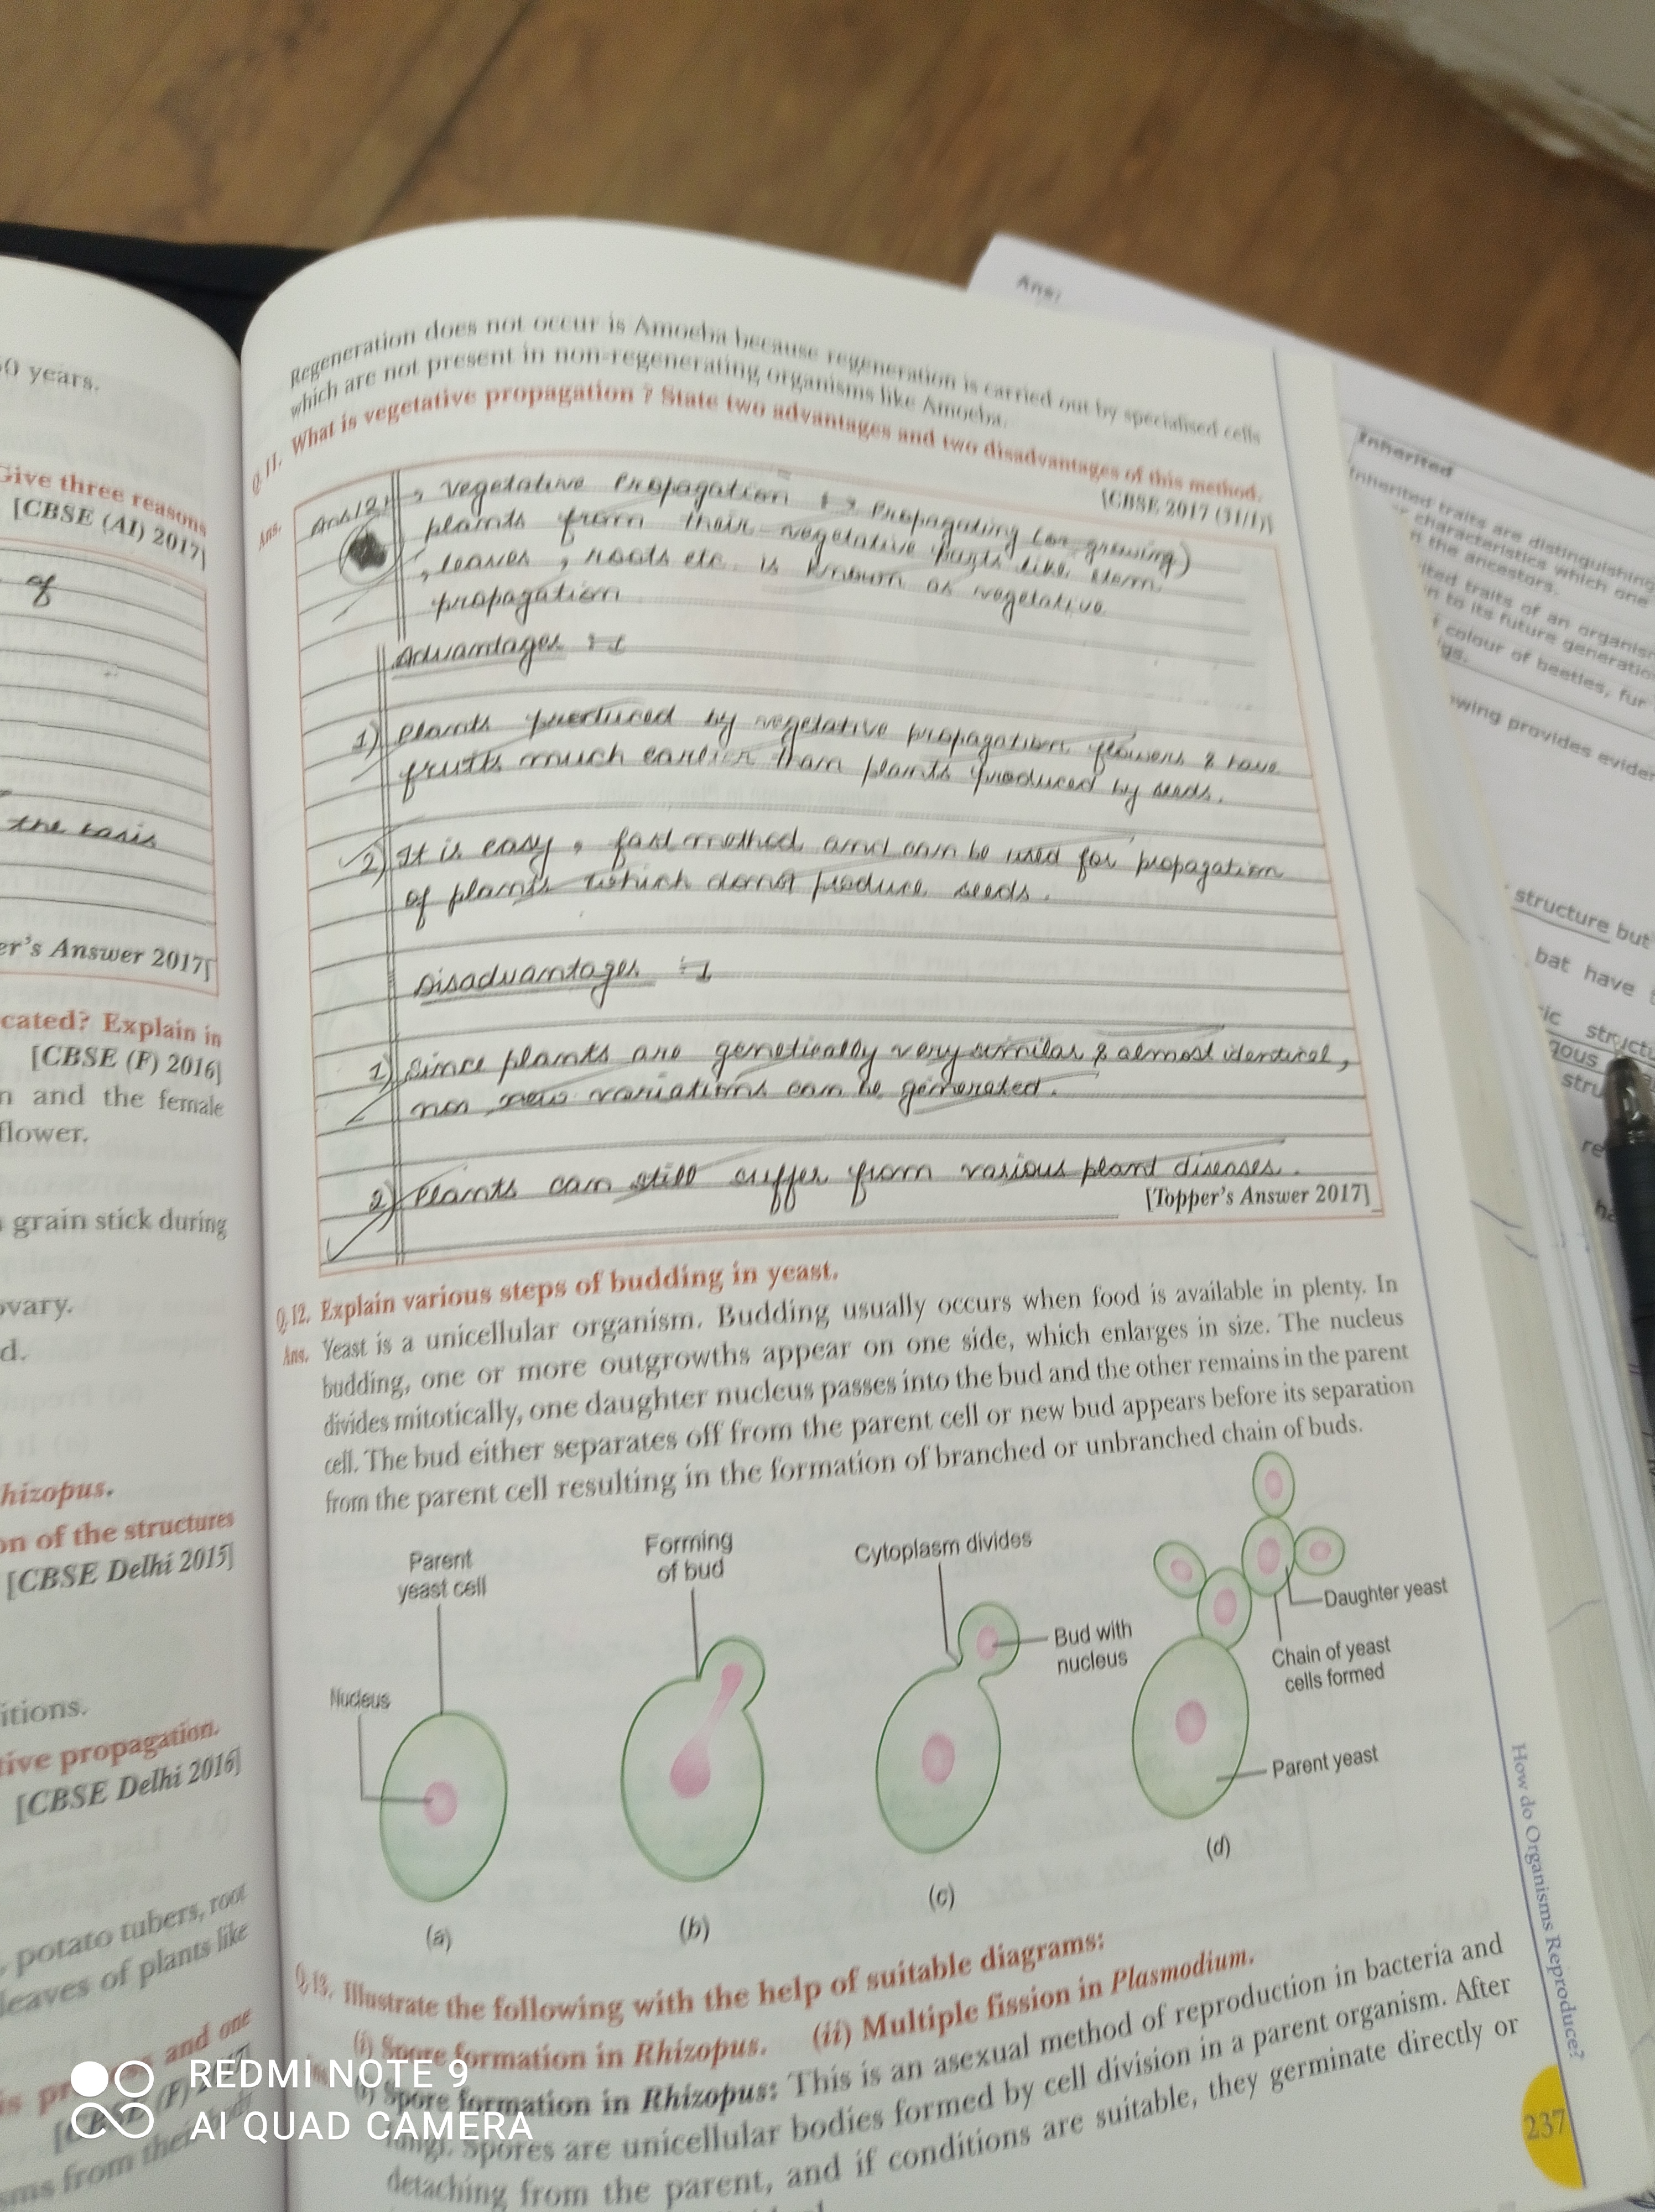 Regeneration does not occur is Amoeba because regeneration is carried out by specialised cells
which are not present in non-regenerating organisms like Amoeba.
Q.11. What is vegetative propagation ? State two advantages and two disadvantages of this method.
[CBSE 2017 (31/1)]
Ans.
Vegetative Propagation :→ Propagating (or growing)
plants from their vegetative parts like stem
, leaves , roots etc. is known as vegetative
propagation
Advantages :-
1) Plants produced by vegetative propagation flowers & have
fruits much earlier than plants produced by seeds.
2) It is easy , fast method and can be used for propagation
of plants which donot produce seeds.
Disadvantages :-
1) Since plants are genetically very similar & almost identical,
no new variations can be generated.
2) Plants can still suffer from various plant diseases.
[Topper's Answer 2017]
Q.12. Explain various steps of budding in yeast.
Ans. Yeast is a unicellular organism. Budding usually occurs when food is available in plenty. In
budding, one or more outgrowths appear on one side, which enlarges in size. The nucleus
divides mitotically, one daughter nucleus passes into the bud and the other remains in the parent
cell. The bud either separates off from the parent cell or new bud appears before its separation
from the parent cell resulting in the formation of branched or unbranched chain of buds.
Parent
yeast cell
Nucleus
(a)
Forming
of bud
(b)
Cytoplasm divides
Bud with
nucleus
(c)
Daughter yeast
Chain of yeast
cells formed
Parent yeast
(d)
Q.13. Illustrate the following with the help of suitable diagrams:
(i) Spore formation in Rhizopus. (ii) Multiple fission in Plasmodium.
(i) Spore formation in Rhizopus: This is an asexual method of reproduction in bacteria and
fungi. Spores are unicellular bodies formed by cell division in a parent organism. After
detaching from the parent, and if conditions are suitable, they germinate directly or
How do Organisms Reproduce?
237
50 years.
Give three reasons
[CBSE (AI) 2017]
of
the basis
er's Answer 2017]
cated? Explain in
[CBSE (F) 2016]
n and the female
flower.
grain stick during
ovary.
d.
hizopus.
on of the structures
[CBSE Delhi 2015]
itions.
tive propagation.
[CBSE Delhi 2016]
, potato tubers, root
leaves of plants like
and one
Ans:
Inherited
Inherited traits are distinguishing
characteristics which one
n the ancestors.
ited traits of an organism
n to its future generation
f colour of beetles, fur
gs.
wing provides eviden
structure but
bat have
ic struct
gous
stru
REDMI NOTE 9
AI QUAD CAMERA